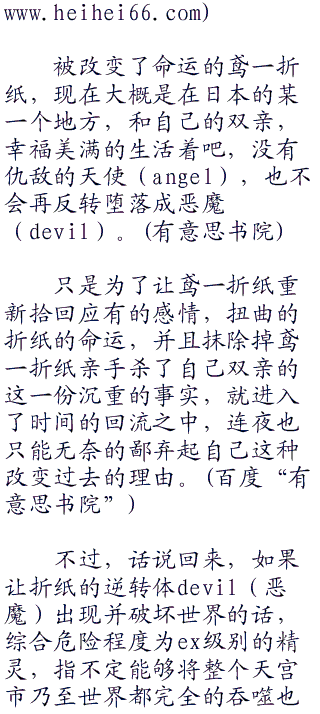 www.heihei66.com)
被改变了命运的鸢一折
纸，现在大概是在日本的某
一个地方，和自己的双亲，
幸福美满的生活着吧，没有
仇敌的天使（angel），也不
会再反转堕落成恶魔
（devil）。(有意思书院)
只是为了让鸢一折纸重
新拾回应有的感情，扭曲的
折纸的命运，并且抹除掉鸢
一折纸亲手杀了自己双亲的
这一份沉重的事实，就进入
了时间的回流之中，连夜也
只能无奈的鄙弃起自己这种
改变过去的理由。(百度“有
意思书院”)
不过，话说回来，如果
让折纸的逆转体devil（恶
魔）出现并破坏世界的话，
综合危险程度为ex级别的精
灵，指不定能够将整个天宫
市乃至世界都完全的吞噬也